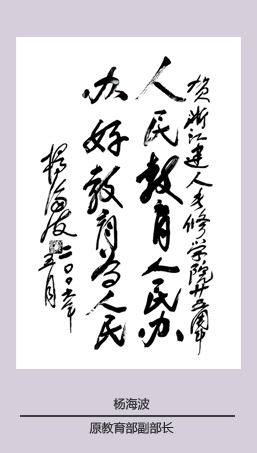 贺浙江建人专修学院廿五周年
人民教育人民办
办好教育为人民
杨海波
二〇〇九年
五月
杨海波
原教育部副部长